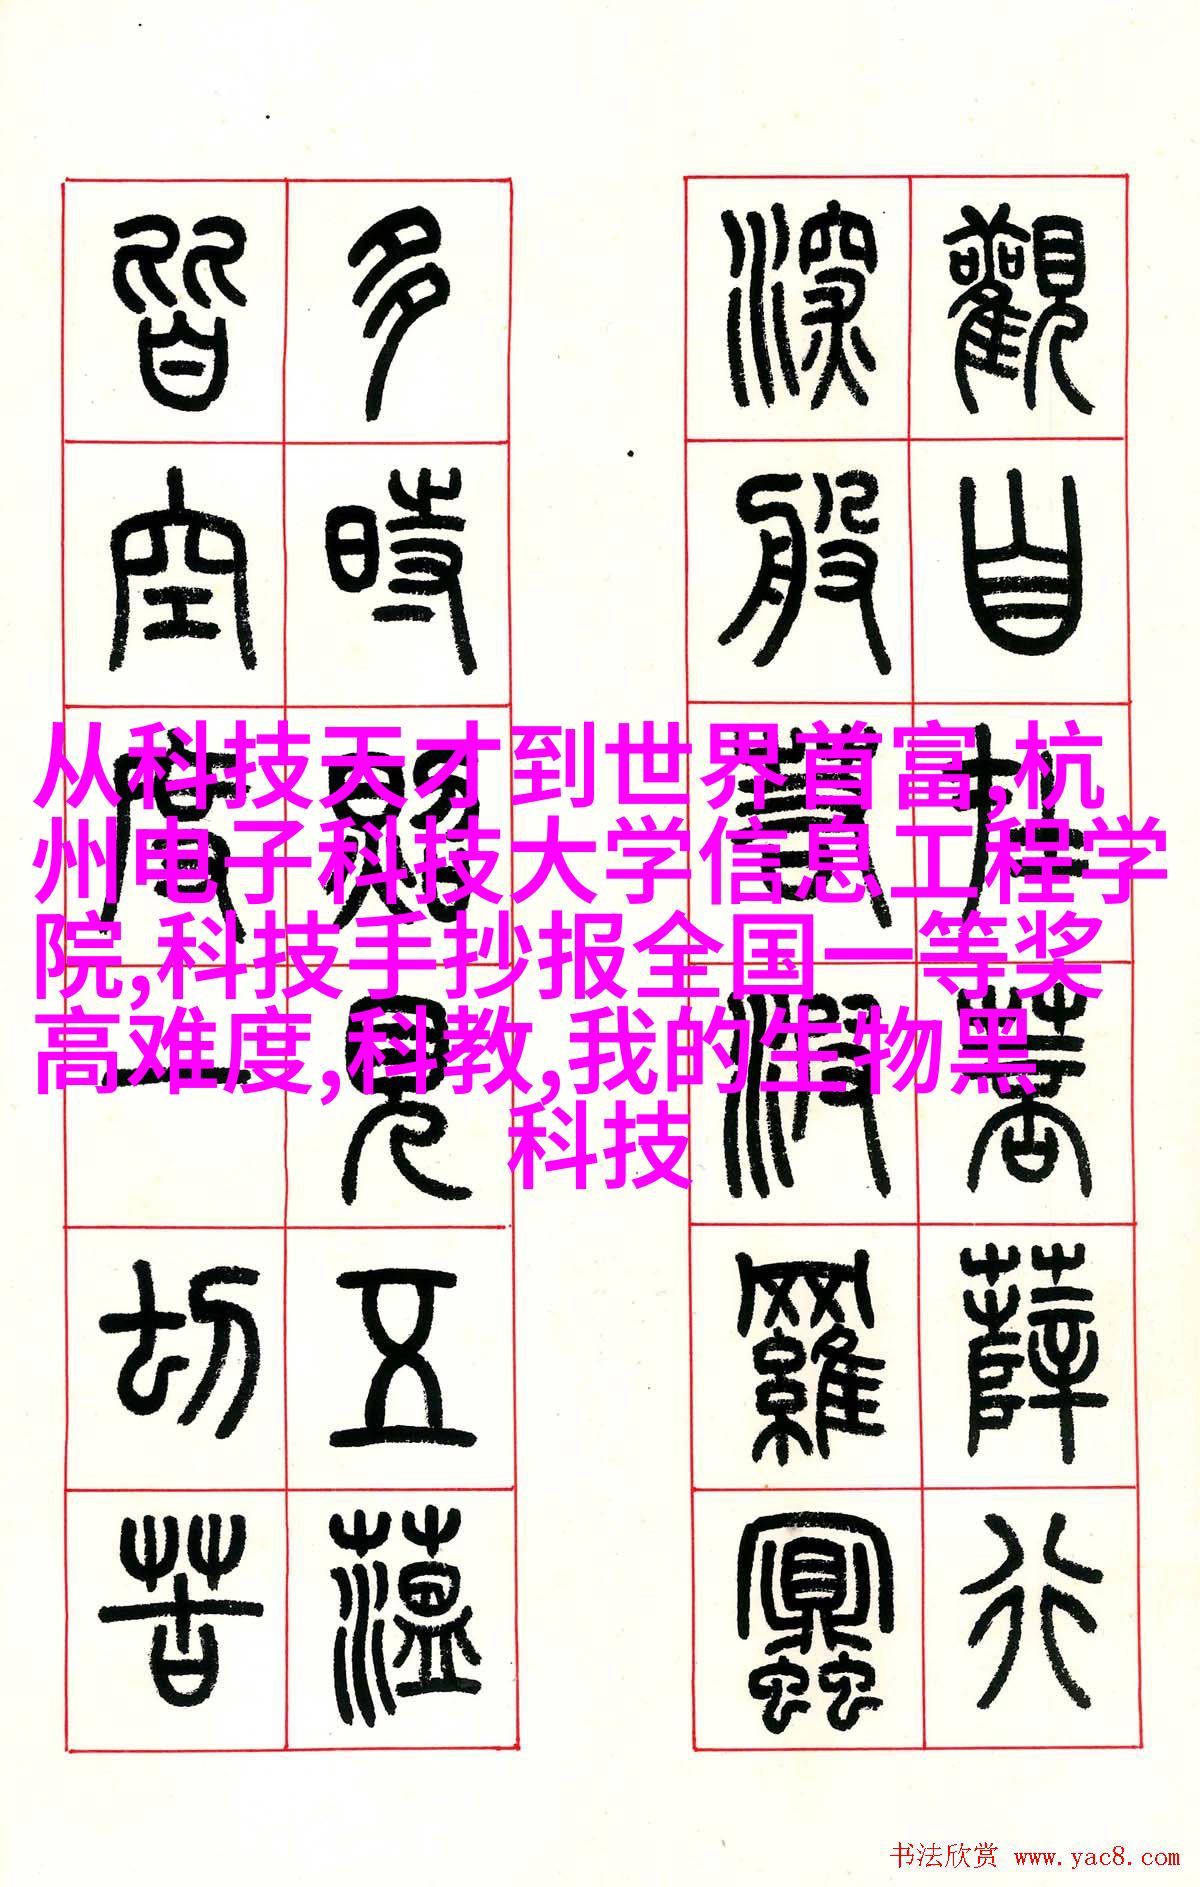 觀自在菩薩行
深般若波羅蜜
多時照見五蘊
皆空度一切苦
从科技天才到世界首富,杭
州电子科技大学信息工程学
院,科技手抄报全国一等奖
高难度,科教,我的生物黑
科技
书法欣赏 www.yac8.com